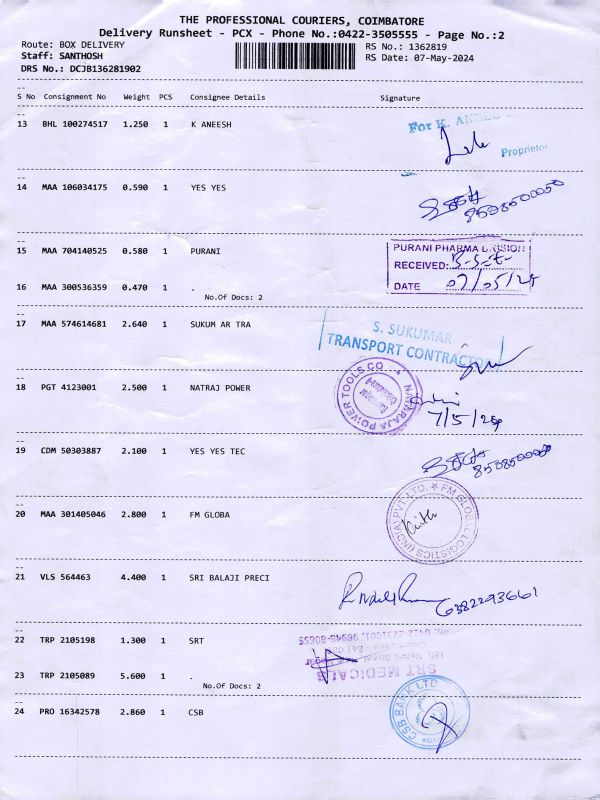 THE PROFESSIONAL COURIERS, COIMBATORE
Delivery Runsheet - PCX - Phone No.:0422-3505555 - Page No.:2
Route: BOX DELIVERY RS No.: 1362819
Staff: SANTHOSH RS Date: 07-May-2024
DRS No.: DCJB136281902
S No Consignment No Weight PCS Consignee Details Signature
13 BHL 100274517 1.250 1 K ANEESH
For K.
Proprietor
14 MAA 106034175 0.590 1 YES YES
15 MAA 704140525 0.580 1 PURANI
PURANI PHARMA DIVISION
RECEIVED:
DATE 07/05/24
16 MAA 300536359 0.470 1 .
No.Of Docs: 2
17 MAA 574614681 2.640 1 SUKUM AR TRA
S. SUKUMAR
TRANSPORT CONTRACTOR
18 PGT 4123001 2.500 1 NATRAJ POWER
NATARAJA POWER TOOLS CO
7/5/24
19 CDM 50303887 2.100 1 YES YES TEC
20 MAA 301405046 2.800 1 FM GLOBA
FM GLOBAL LOGISTICS (INDIA) PVT. LTD.
21 VLS 564463 4.400 1 SRI BALAJI PRECI
6382293661
22 TRP 2105198 1.300 1 SRT
SRT MEDICALS
23 TRP 2105089 5.600 1 .
No.Of Docs: 2
24 PRO 16342578 2.860 1 CSB
CSB BANK LTD